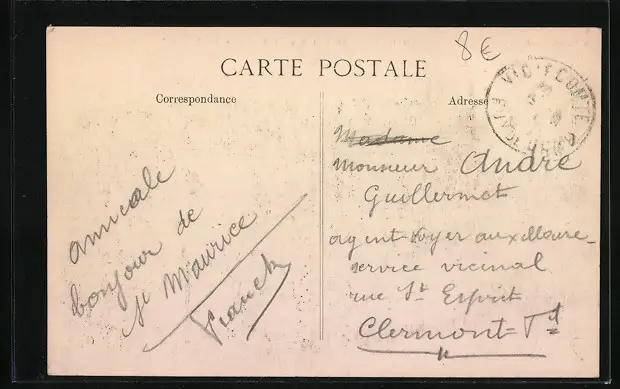 8 €
CARTE POSTALE
Correspondance
Adresse
VIC-LE-COMTE
amicale
bonjour de
St Maurice
Franck
Madame
Monsieur André
Guillermot
agent-voyer auxiliaire
service vicinal
rue St Esprit
Clermont-Fd